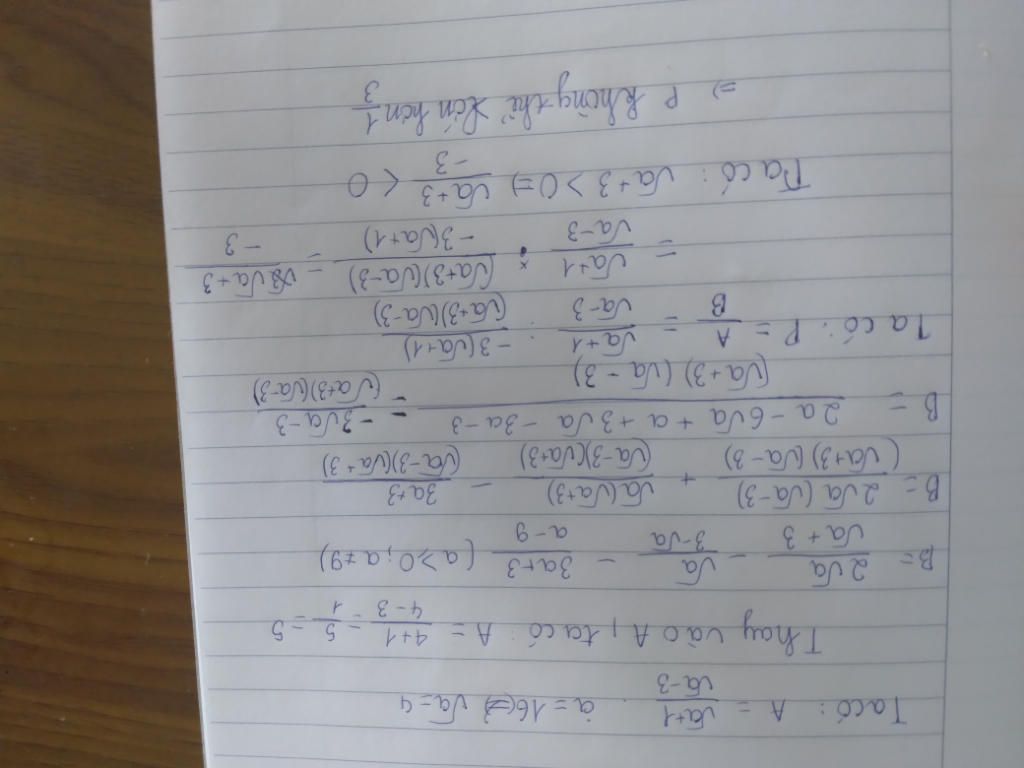 Ta có: A = (√a+1)/(√a-3) . a = 16 (=) √a=4
Thay vào A, ta có: A = (4+1)/(4-3) = 5/1 = 5
B= 2√a/(√a+3) - √a/(3-√a) - (3a+3)/(a-9) (a>0; a≠9)
B= 2√a(√a-3)/(√a+3)(√a-3) + √a(√a+3)/(√a-3)(√a+3) - (3a+3)/(√a-3)(√a+3)
B = (2a-6√a+a+3√a-3a-3)/(√a+3)(√a-3) = (-3√a-3)/(√a+3)(√a-3)
Ta có: P = A/B = (√a+1)/(√a-3) : -3(√a+1)/(√a+3)(√a-3)
= (√a+1)/(√a-3) . (√a+3)(√a-3)/-3(√a+1) = (√a+3)/-3
Ta có: √a+3 >0 => (√a+3)/-3 < 0
=> P không thể lớn hơn 1/3